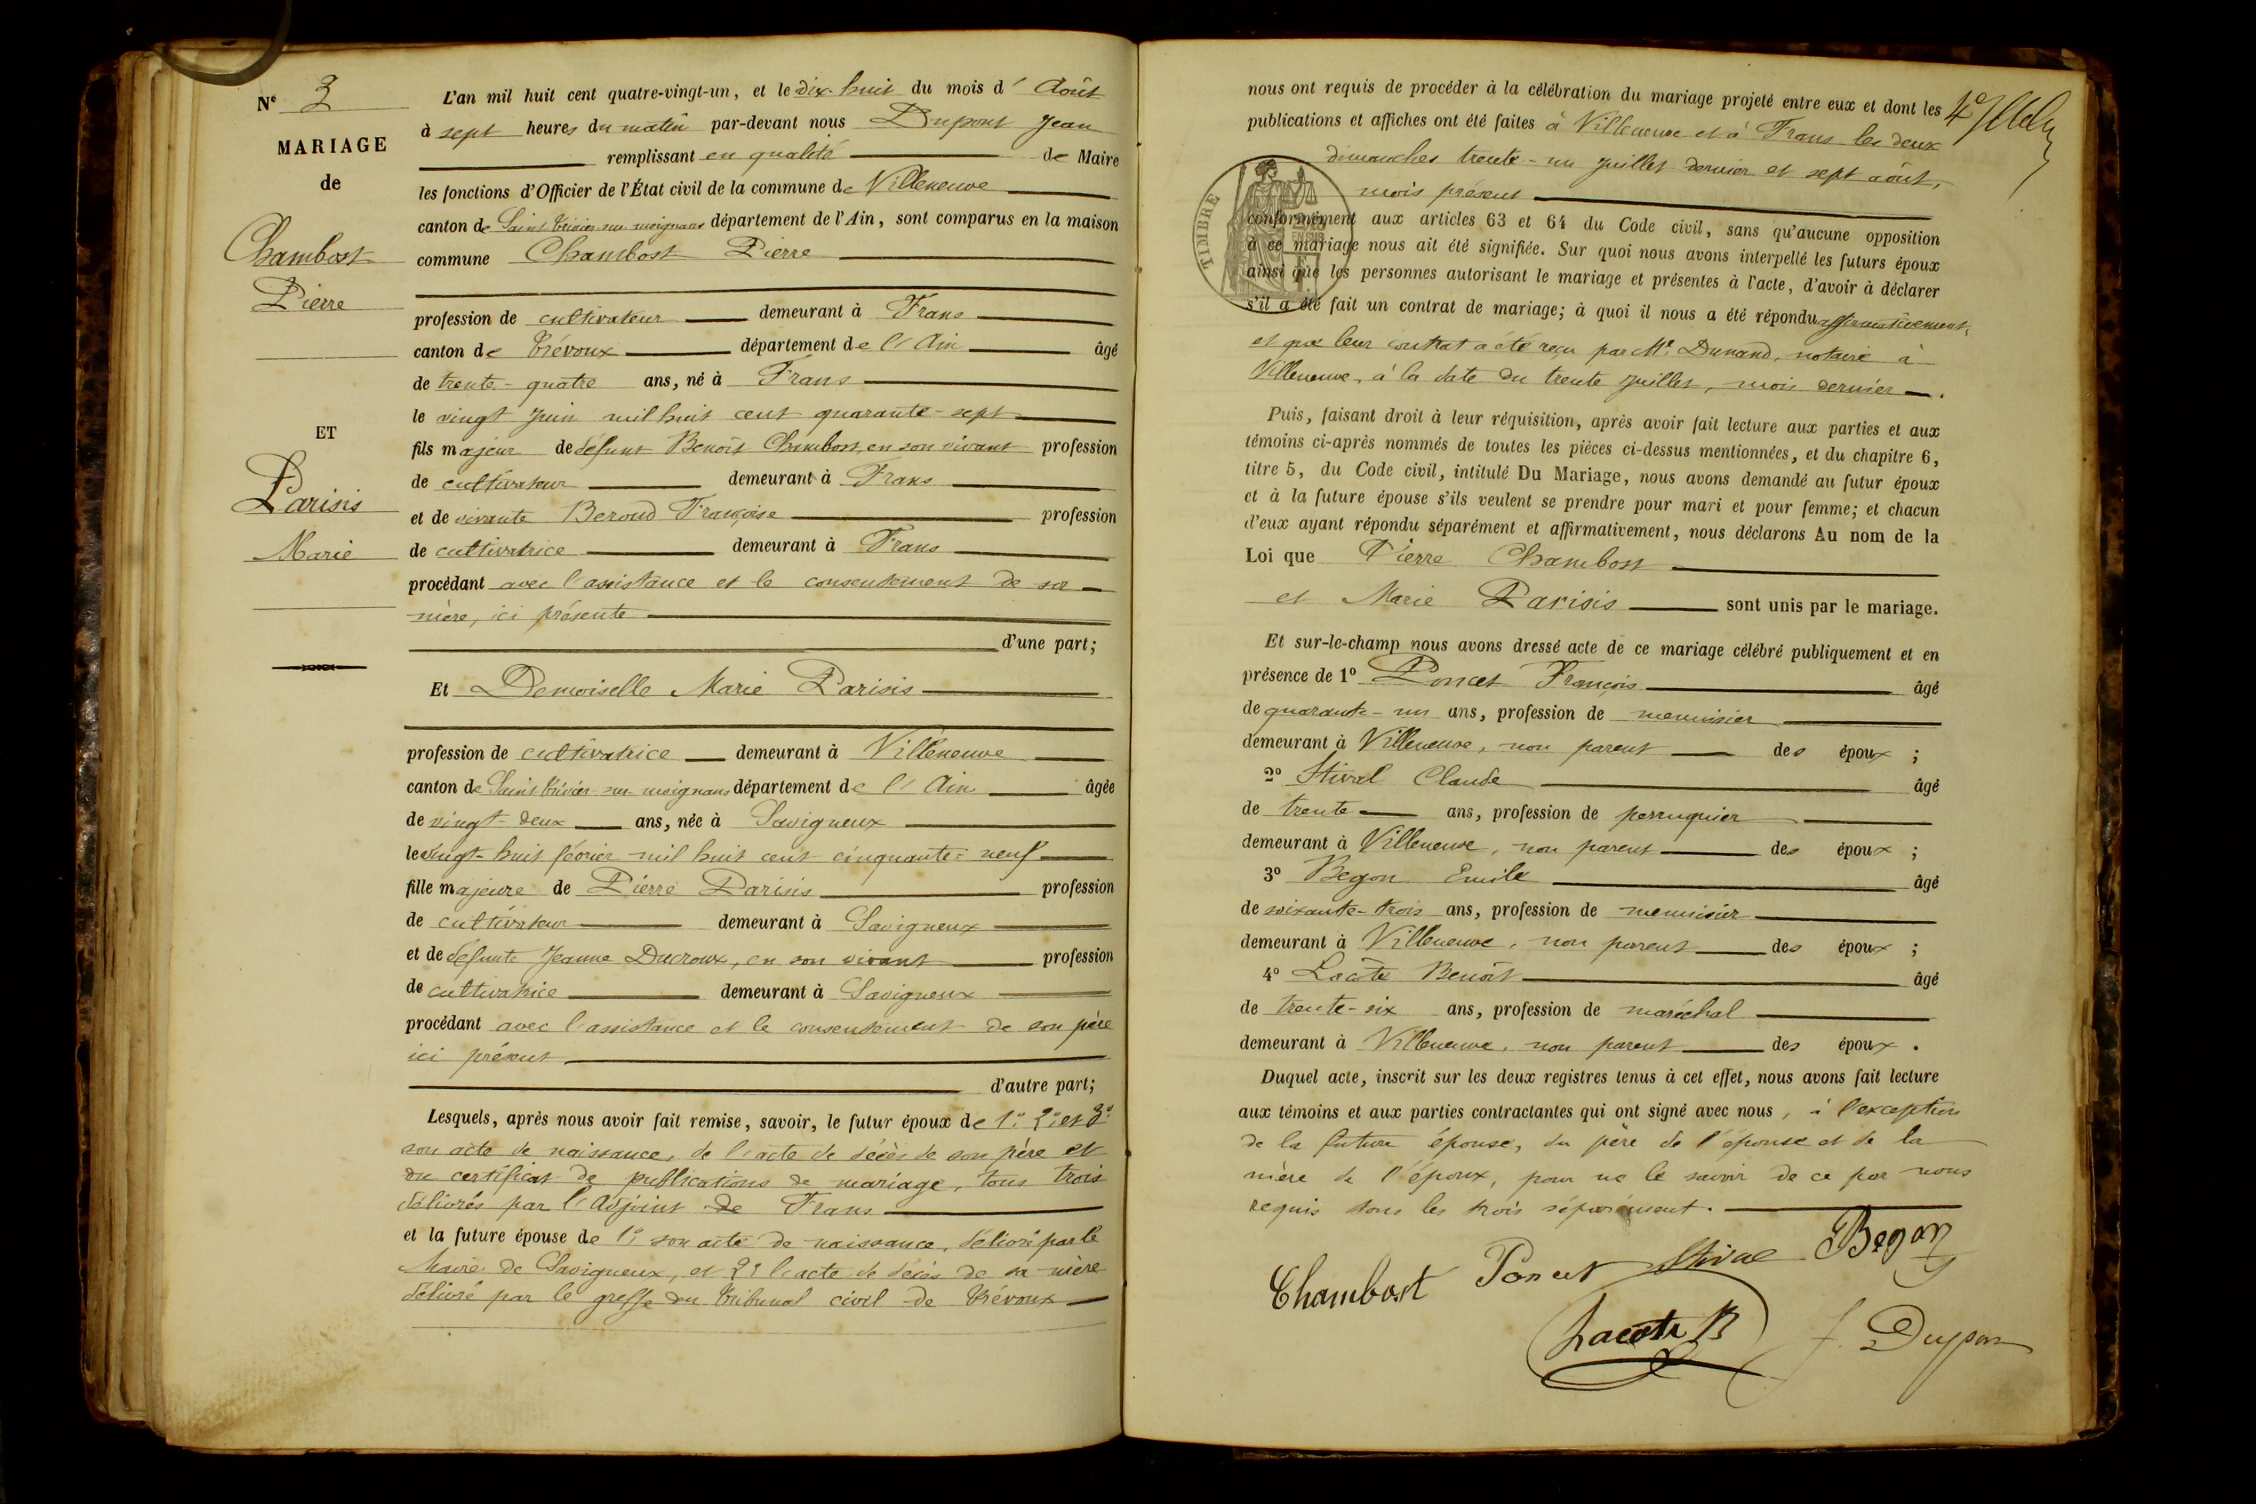 N° 3
MARIAGE
de
Chambost
Pierre
ET
Parisis
Marie
L'an mil huit cent quatre-vingt-un, et le dix-huit du mois d'Août
à sept heures du matin par-devant nous Dupont Jean
remplissant en qualité de Maire
les fonctions d'Officier de l'État civil de la commune de Villeneuve
canton de Saint Trivier-sur-moignans département de l'Ain, sont comparus en la maison
commune Chambost Pierre
profession de cultivateur demeurant à Frans
canton de Trévoux département de l'Ain âgé
de trente-quatre ans, né à Frans
le vingt Juin mil huit cent quarante-sept
fils majeur de défunt Benoît Chambost, en son vivant profession
de cultivateur demeurant à Frans
et de vivante Beroud Françoise profession
de cultivatrice demeurant à Frans
procédant avec l'assistance et le consentement de sa
mère, ici présente
d'une part;
Et Demoiselle Marie Parisis
profession de cultivatrice demeurant à Villeneuve
canton de Saint Trivier-sur-moignans département de l'Ain âgée
de vingt-deux ans, née à Savigneux
le vingt-huit février mil huit cent cinquante-neuf
fille majeure de Pierre Parisis profession
de cultivateur demeurant à Savigneux
et de défunte Jeanne Ducroux, en son vivant profession
de cultivatrice demeurant à Savigneux
procédant avec l'assistance et le consentement de son père
ici présent
d'autre part;
Lesquels, après nous avoir fait remise, savoir, le futur époux de 1° 2° et 3°
son acte de naissance, de l'acte de décès de son père et
du certificat de publications de mariage, tous trois
délivrés par l'Adjoint de Frans
et la future épouse de 1° son acte de naissance, délivré par le
Maire de Savigneux, et 2° l'acte de décès de sa mère
délivré par le greffe du Tribunal civil de Trévoux
nous ont requis de procéder à la célébration du mariage projeté entre eux et dont les
publications et affiches ont été faites à Villeneuve et à Frans les deux
dimanches trente-un juillet dernier et sept août,
mois présent
TIMBRE
conformément aux articles 63 et 64 du Code civil, sans qu'aucune opposition
à ce mariage nous ait été signifiée. Sur quoi nous avons interpellé les futurs époux
ainsi que les personnes autorisant le mariage et présentes à l'acte, d'avoir à déclarer
s'il a été fait un contrat de mariage; à quoi il nous a été répondu affirmativement,
et que leur contrat a été reçu par Me Dunand, notaire à
Villeneuve, à la date du trente juillet, mois dernier.
Puis, faisant droit à leur réquisition, après avoir fait lecture aux parties et aux
témoins ci-après nommés de toutes les pièces ci-dessus mentionnées, et du chapitre 6,
titre 5, du Code civil, intitulé Du Mariage, nous avons demandé au futur époux
et à la future épouse s'ils veulent se prendre pour mari et pour femme; et chacun
d'eux ayant répondu séparément et affirmativement, nous déclarons Au nom de la
Loi que Pierre Chambost
et Marie Parisis sont unis par le mariage.
Et sur-le-champ nous avons dressé acte de ce mariage célébré publiquement et en
présence de 1° Poncet François âgé
de quarante-un ans, profession de menuisier
demeurant à Villeneuve, non parent des époux ;
2° Stival Claude âgé
de trente ans, profession de perruquier
demeurant à Villeneuve, non parent des époux ;
3° Begon Emile âgé
de soixante-trois ans, profession de menuisier
demeurant à Villeneuve, non parent des époux ;
4° Lacôte Benoît âgé
de trente-six ans, profession de maréchal
demeurant à Villeneuve, non parent des époux.
Duquel acte, inscrit sur les deux registres tenus à cet effet, nous avons fait lecture
aux témoins et aux parties contractantes qui ont signé avec nous, à l'exception
de la future épouse, du père de l'épouse et de la
mère de l'époux, pour ne le savoir de ce par nous
requis tous les trois séparément.
Chambost Poncet Stival Begon
Lacote B J. Dupont